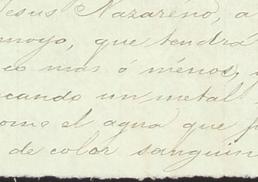 Jesus Nazaréno, a
moyo, que tendrá
co mas ó ménos,
cando un metal
como el agua que
de color sanguin